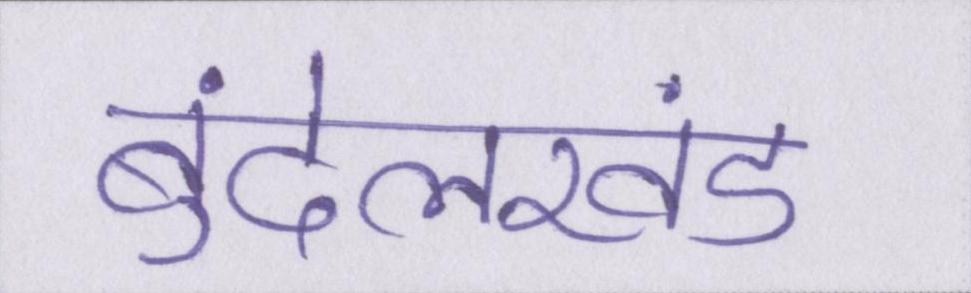 बुंदेलखंड